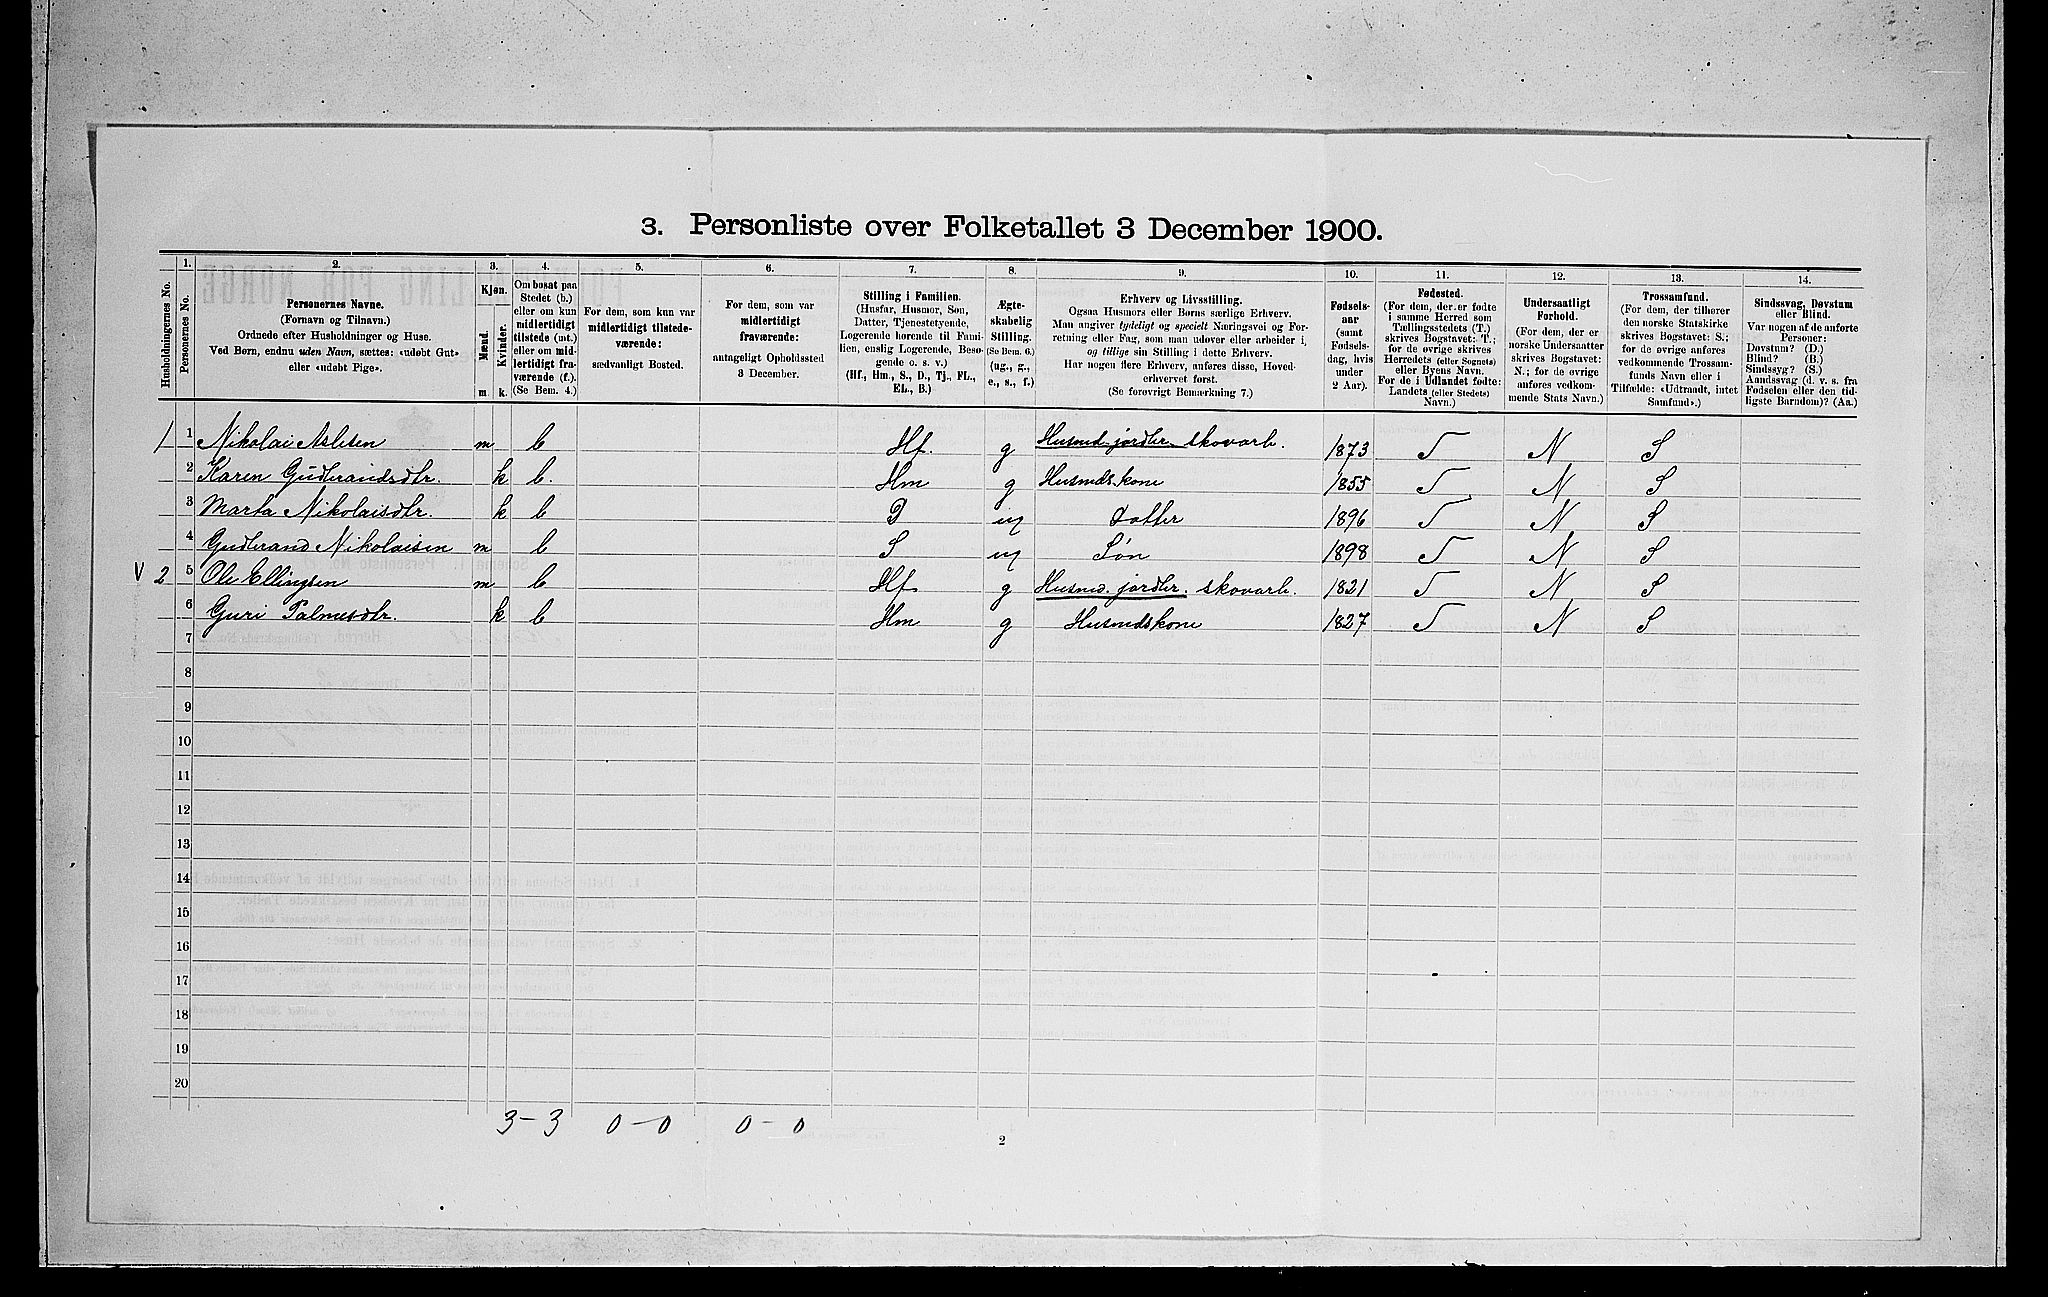 3. Personliste over Folketallet 3 December 1900.
1. 2. 3. 4. 5. 6. 7. 8. 9. 10. 11. 12. 13. 14.
Husholdningernes No.
Personernes No.
Personernes Navne.
(Fornavn og Tilnavn.)
Ordnede efter Husholdninger og Huse.
Ved Børn, endnu uden Navn, sættes: «udøbt Gut»
eller «udøbt Pige».
Kjøn.
Mænd.
Kvinder.
m. k.
Om bosat paa
Stedet (b.)
eller om kun
midlertidigt
tilstede (mt.)
eller om mid-
lertidigt fra-
værende (f.).
(Se Bem. 4.)
For dem, som kun var
midlertidigt tilstede-
værende:
sædvanligt Bosted.
For dem, som var
midlertidigt
fraværende:
antageligt Opholdssted
3 December.
Stilling i Familien.
(Husfar, Husmor, Søn,
Datter, Tjenestetyende,
Logerende hørende til Fami-
lien, enslig Logerende, Besø-
gende o. s. v.)
(Hf., Hm., S., D., Tj., FL.,
EL., B.)
Ægte-
skabelig
Stilling.
(Se Bem. 6.)
(ug., g.,
e., s., f.)
Erhverv og Livsstilling.
Ogsaa Husmors eller Børns særlige Erhverv.
Man angiver tydeligt og specielt Næringsvei og For-
retning eller Fag, som man udøver eller arbeider i,
og tillige sin Stilling i dette Erhverv.
Har nogen flere Erhverv, anføres disse, Hoved-
erhvervet først.
(Se forøvrigt Bemærkning 7.)
Fødsels-
aar
(samt
Fødsels-
dag, hvis
under
2 Aar).
Fødested.
(For dem, der er fødte
i samme Herred som
Tællingsstedets (T.)
skrives Bogstavet: T.;
for de øvrige skrives
Herredets (eller Sognets)
eller Byens Navn.
For de i Udlandet fødte:
Landets (eller Stedets)
Navn.)
Undersaatligt
Forhold.
(For dem, der er
norske Undersaatter
skrives Bogstavet:
N.; for de øvrige
anføres vedkom-
mende Stats Navn.)
Trossamfund.
(For dem, der tilhører
den norske Statskirke
skrives Bogstavet: S.;
for de øvrige anføres
vedkommende Trossam-
funds Navn eller i
Tilfælde: «Udtraadt, intet
Samfund».)
Sindssvag, Døvstum
eller Blind.
Var nogen af de anførte
Personer:
Døvstum? (D.)
Blind? (B.)
Sindssyg? (S.)
Aandssvag (d. v. s. fra
Fødselen eller den tid-
ligste Barndom)? (Aa.)
1 1 Nikolai Aslesen m b Hf. g Husmd. jordbr. skovarb. 1873 T N S
2 Karen Gudbrandsdtr. k b. Hm g Husmdskone 1855 T N S
3 Marta Nikolaisdtr. k b D ug datter 1896 T N S
4 Gudbrand Nikolaisen m b S ug Søn 1898 T N S
V 2 5 Ole Ellingsen m b Hf g Husmd. jordbr. skovarb. 1821 T N S
6 Guri Palmesdtr. k b Hm g Husmdskone 1827 T N S
7
8
9
10
11
12
13
14
15
16
17
18
19
20
3-3 0-0 0-0
2